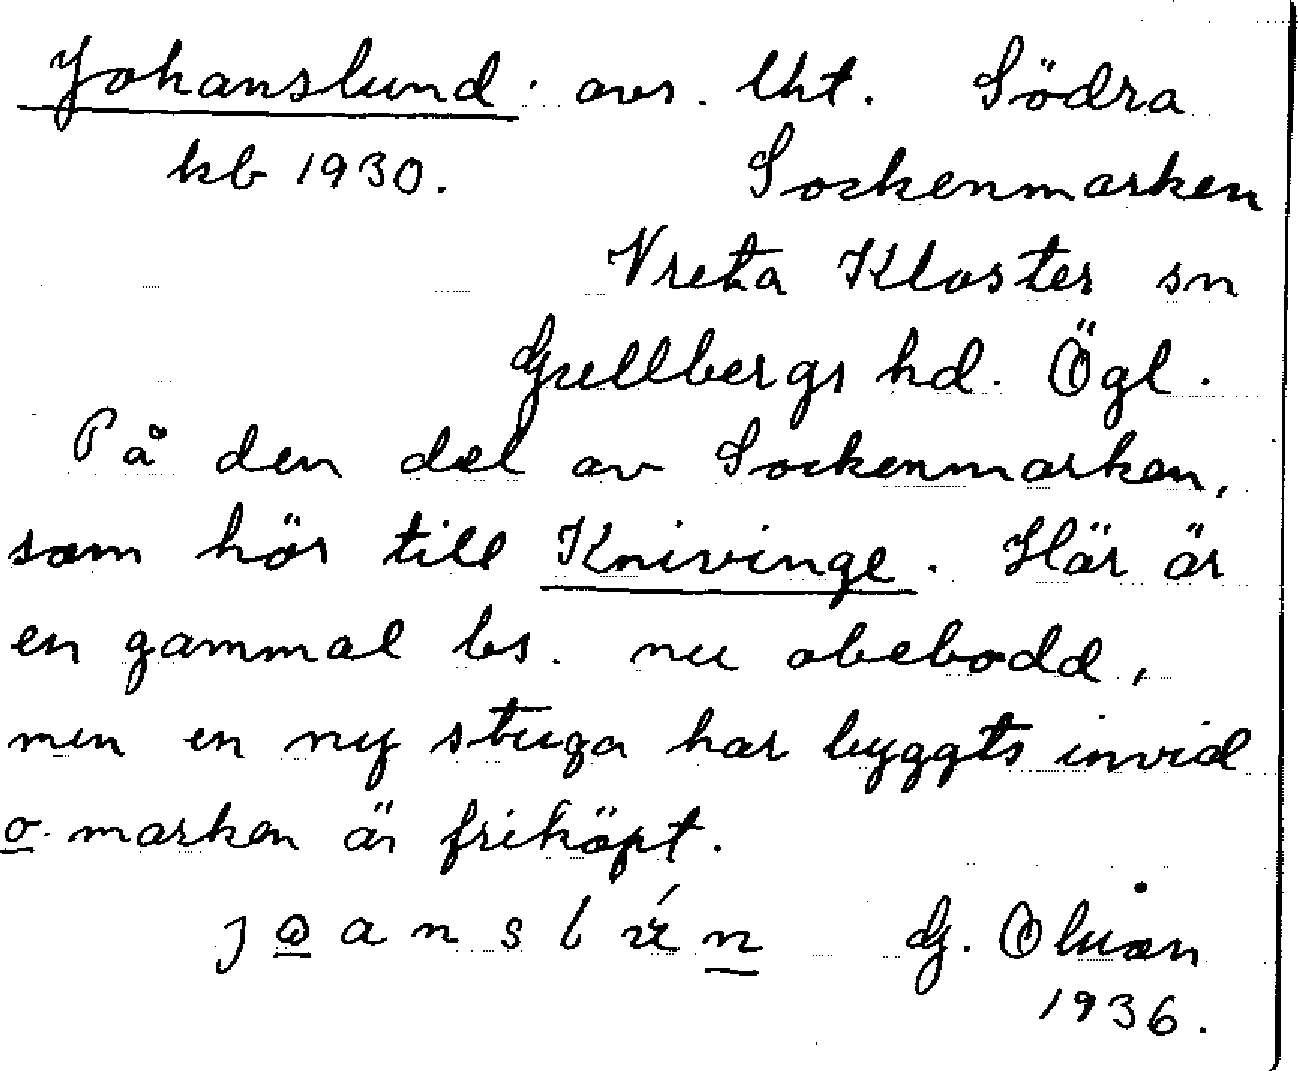 Johanslund. avs. lht. Södra
kb 1930. Sockenmarken
Vreta Kloster sn
Gullbergs hd. Ögl.
På den del av Sockenmarken,
som hör till Knivinge. Här är
en gammal bs. nu obebodd,
men en ny stuga har byggts invid
o. marken är friköpt.
joansl n G.
1936.